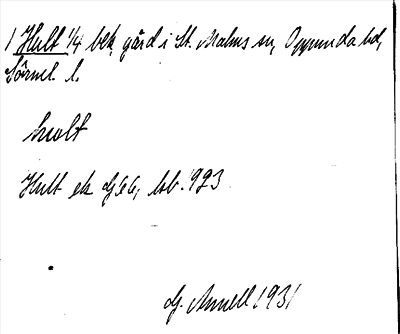 1 Hult 1/4 bek. gård i St. Malms sn, Oppunda hd,
Södml. l.
hwlt
Hult ek GEG, lsb. 1923
G. Annell 1931